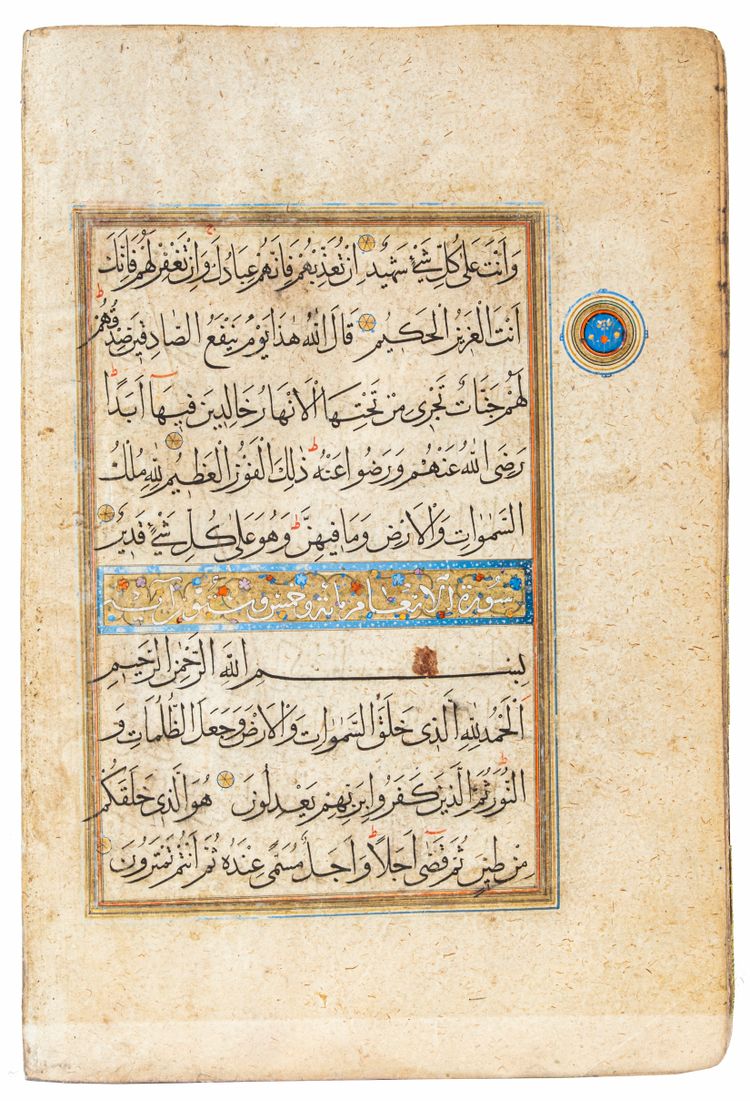 وَأَنْتَ عَلَىٰ كُلِّ شَيْءٍ شَهِيدٌ إِنْ تُعَذِّبْهُمْ فَإِنَّهُمْ عِبَادُكَ وَإِنْ تَغْفِرْ لَهُمْ فَإِنَّكَ
أَنْتَ الْعَزِيزُ الْحَكِيمُ قَالَ اللَّهُ هَٰذَا يَوْمُ يَنْفَعُ الصَّادِقِينَ صِدْقُهُمْ
لَهُمْ جَنَّاتٌ تَجْرِي مِنْ تَحْتِهَا الْأَنْهَارُ خَالِدِينَ فِيهَا أَبَدًا
رَضِيَ اللَّهُ عَنْهُمْ وَرَضُوا عَنْهُ ذَٰلِكَ الْفَوْزُ الْعَظِيمُ لِلَّهِ مُلْكُ
السَّمَوَاتِ وَالْأَرْضِ وَمَا فِيهِنَّ وَهُوَ عَلَىٰ كُلِّ شَيْءٍ قَدِيرٌ
سورة الانعام مائة وخمس وستون آية
بِسْمِ اللَّهِ الرَّحْمَٰنِ الرَّحِيمِ
الْحَمْدُ لِلَّهِ الَّذِي خَلَقَ السَّمَوَاتِ وَالْأَرْضَ وَجَعَلَ الظُّلُمَاتِ وَ
النُّورَ ثُمَّ الَّذِينَ كَفَرُوا بِرَبِّهِمْ يَعْدِلُونَ هُوَ الَّذِي خَلَقَكُمْ
مِنْ طِينٍ ثُمَّ قَضَىٰ أَجَلًا وَأَجَلٌ مُسَمًّى عِنْدَهُ ثُمَّ أَنْتُمْ تَمْتَرُونَ